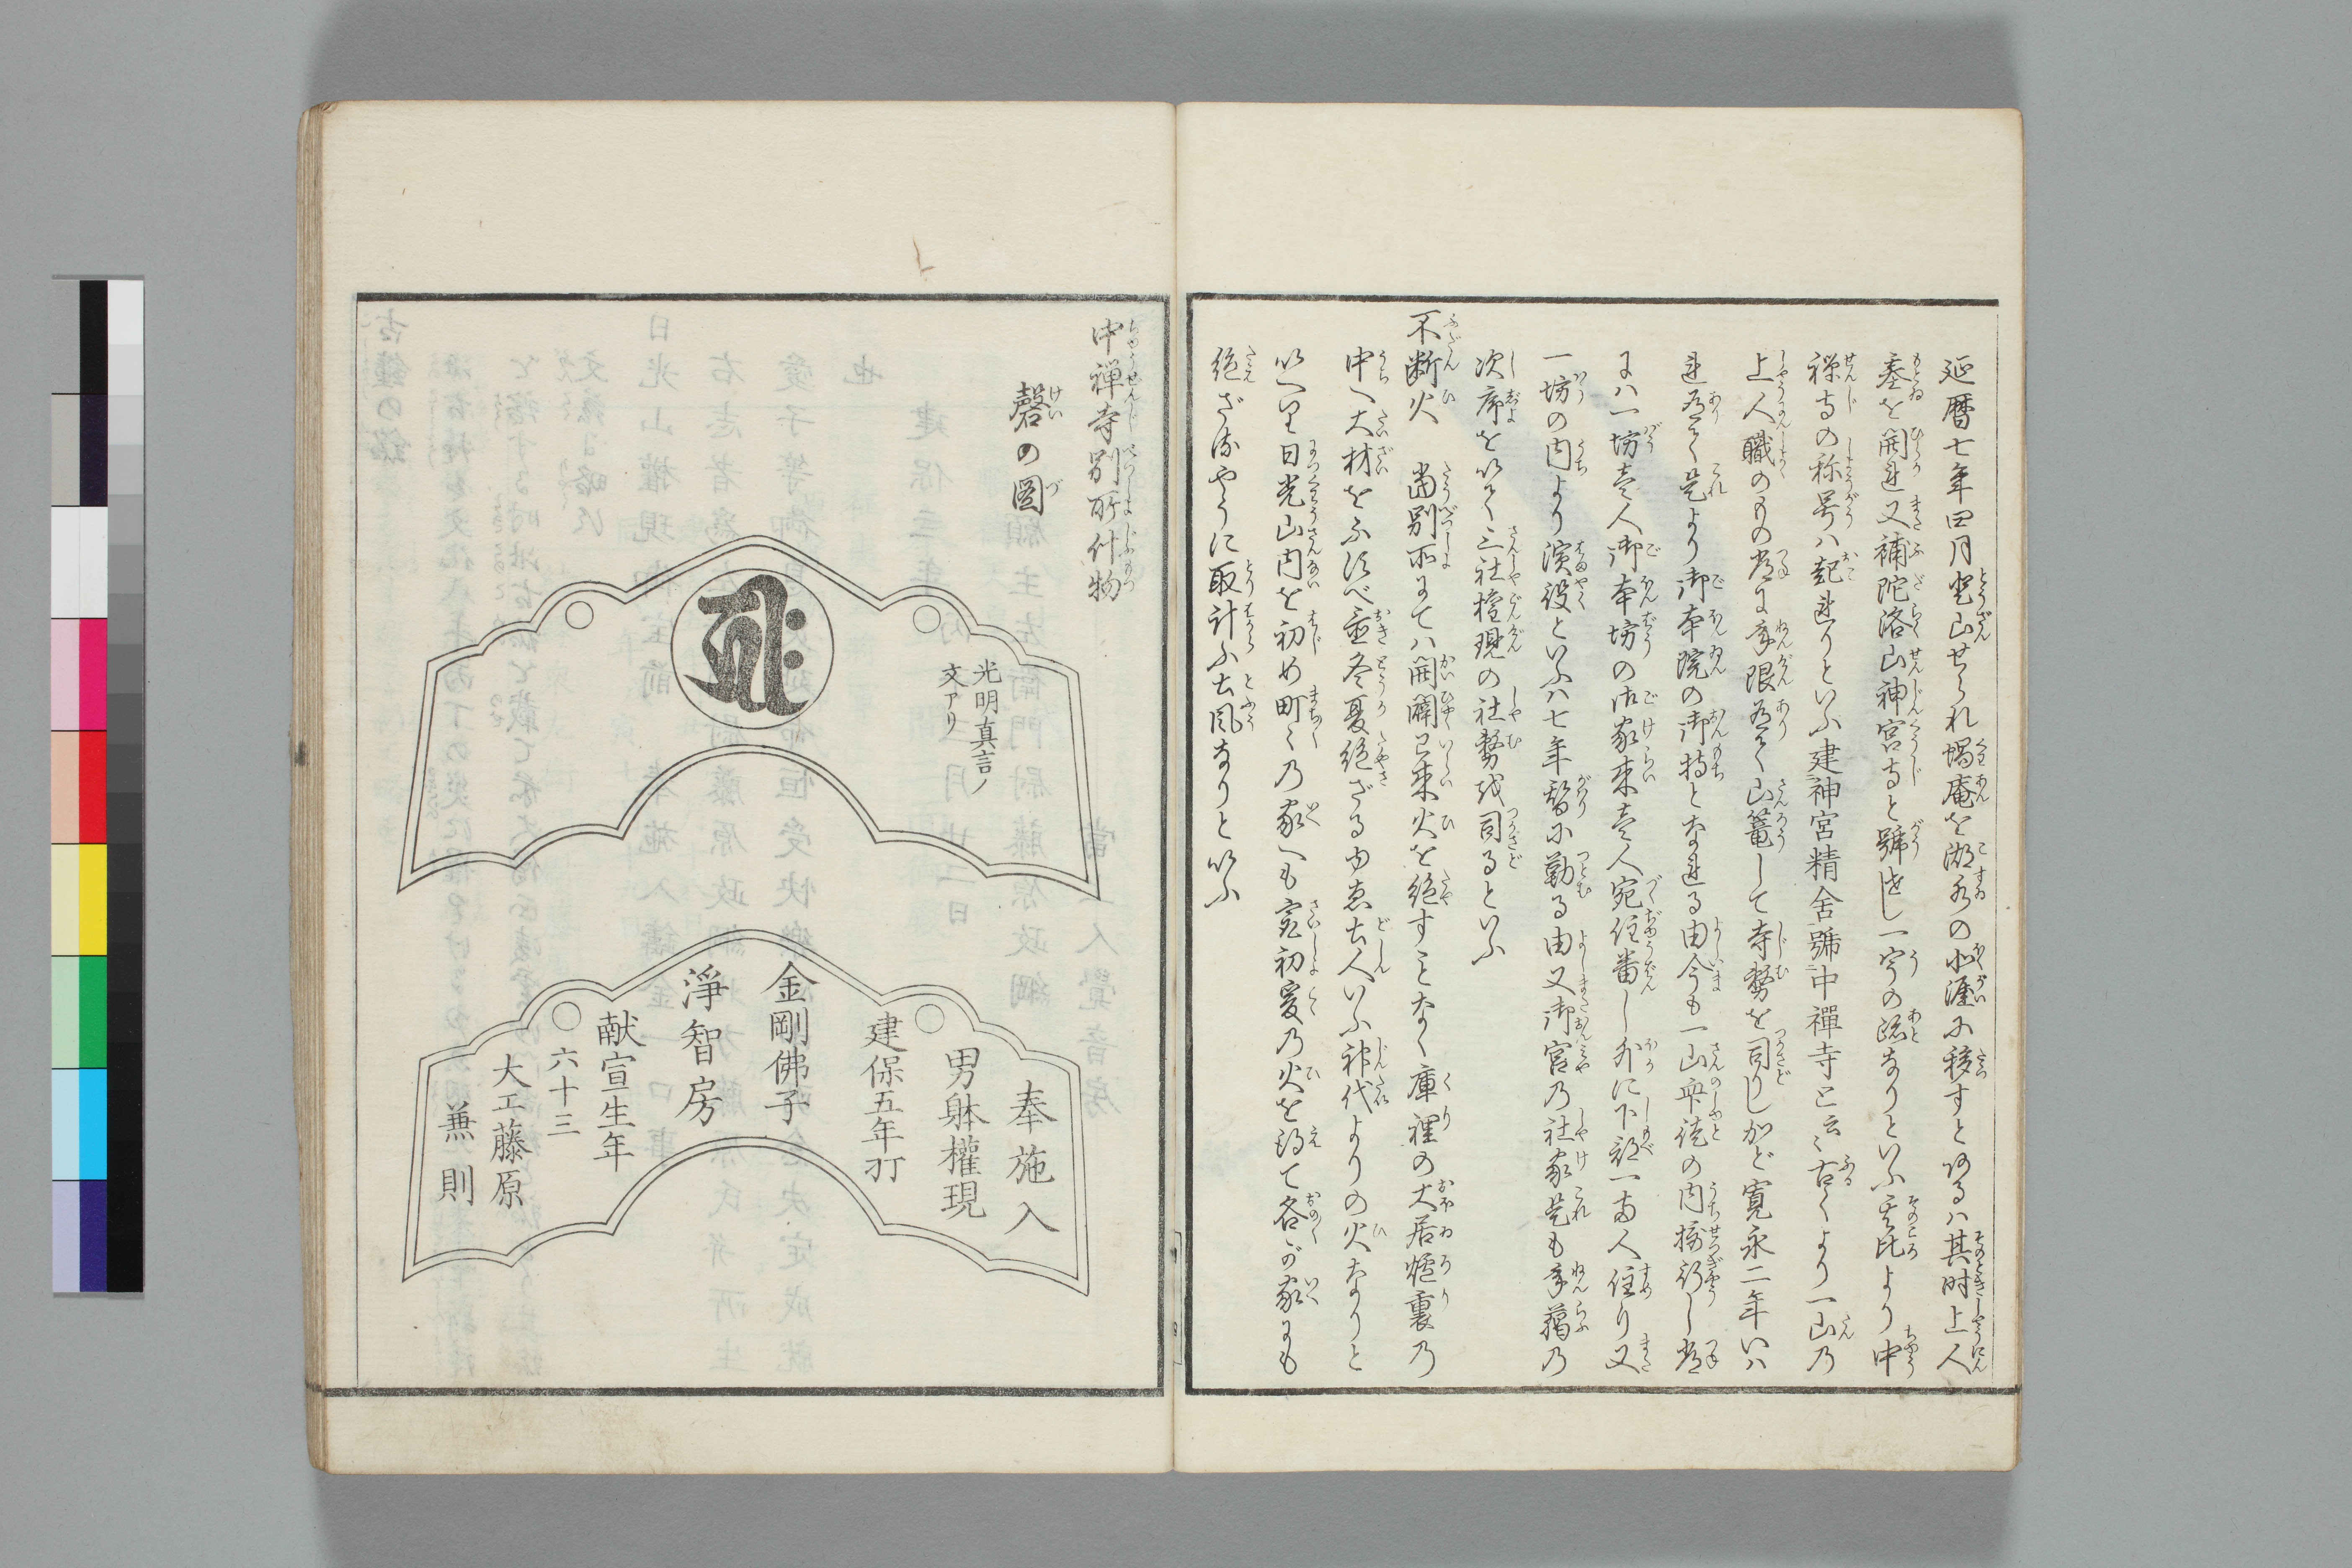 延暦七年四月登山せられ蝸庵を湖水の北涯に移すとあるハ其時上人
基を開れ又補陀洛山神宮寺と號せし一宇の跡なりといふ其比より中
禅寺の称号ハ起れりといふ建神宮精舎號中禪寺と云々古くより一山乃
上人職のもの常に年限有て山篭して寺務を司りしかど寛永二年いハ
れ有て是より御本院の御持となれる由今も一山衆徒の内摂行し常
にハ一坊壱人御本坊の御家来壱人宛住番し外に下部一両人住り又
一坊の内より濱役といふハ七年暫に勤る由又御宮乃社家是も年﨟乃
次序を以て三社権現の社務を司るといふ
不断火　当別所にてハ開闢已来火を絶すことなく庫裡の大居炉裏乃
中へ大材をふすべ置冬夏絶ざるゆゑ土人いふ神代よりの火なりと
いへり日光山内を初め町々乃家へも寂初爰乃火を得て各が家にも
絶ざるやうに取計ふ土風なりといふ
中禅寺別所什物
磬の圖
光明真言ノ
文アリ
奉施入
男躰權現
建保五年丁
金剛佛子
淨智房
献宣生年
六十三
大工藤原
兼則